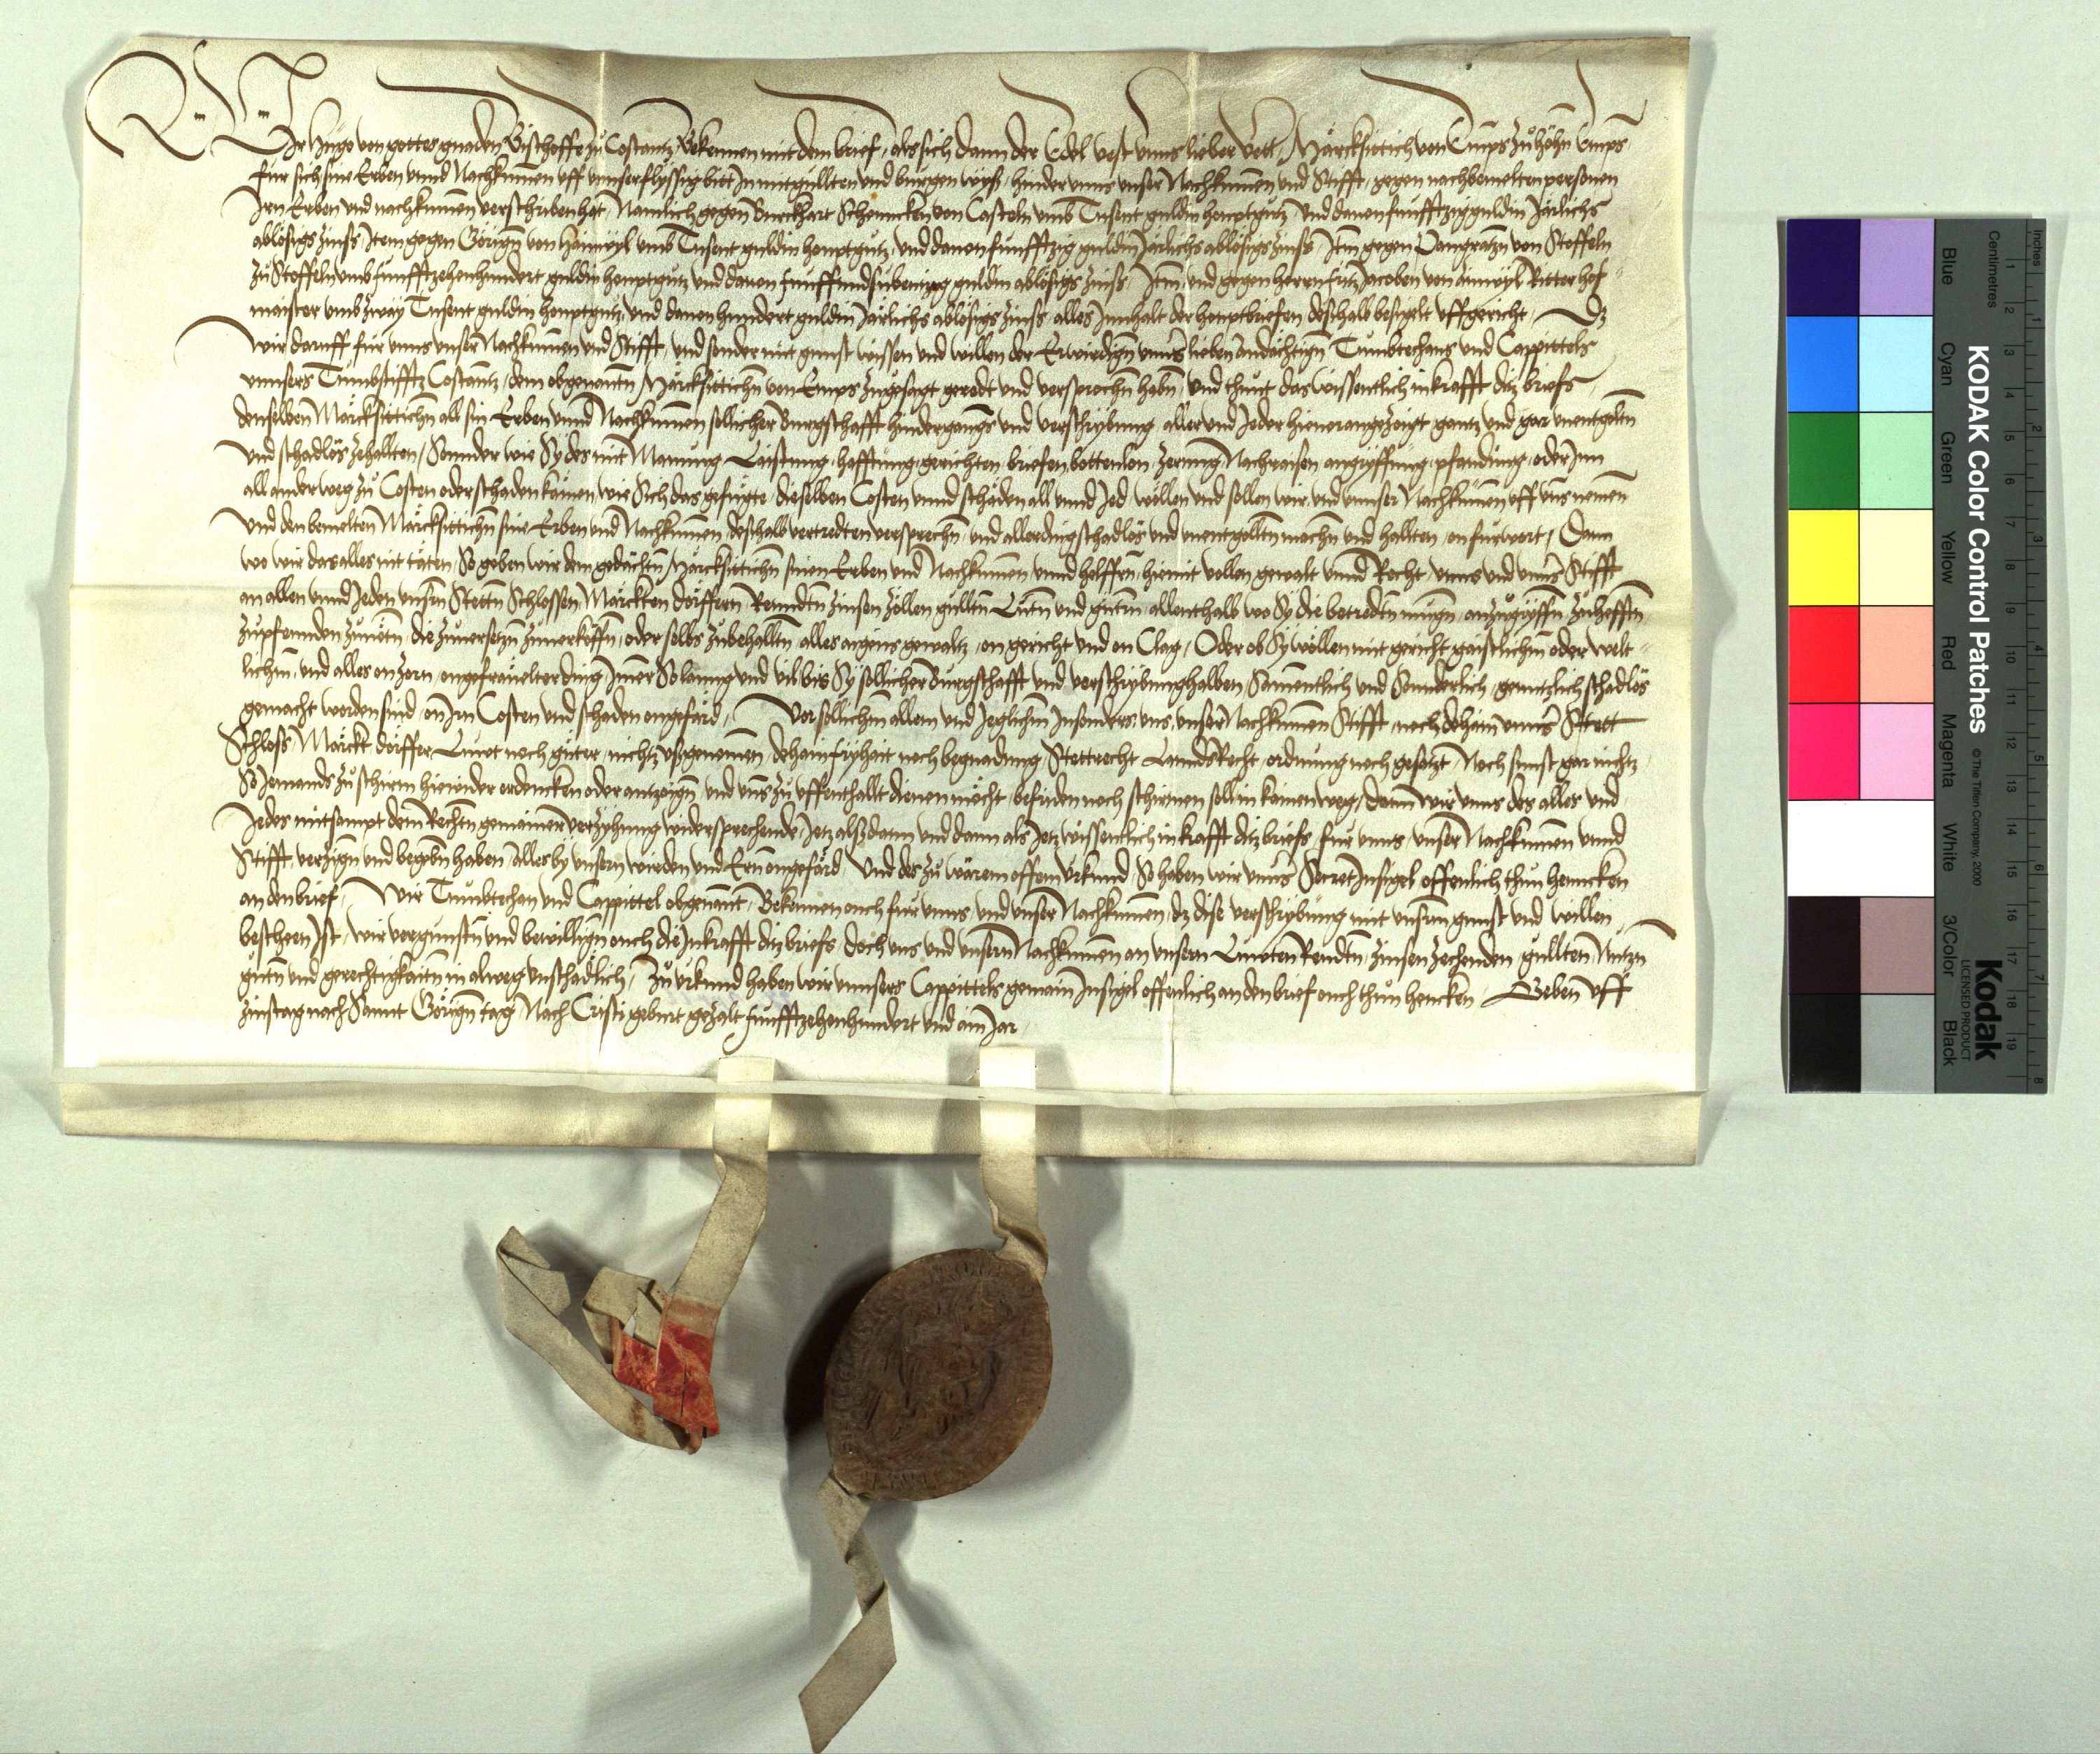 Wir Hugo von gottes gnaden Bischoffe zů Costantz Bekennen mit dem brief, als sich dann der Edel vest unns lieber vett, Märcksittich von Emps zů höhen Emps
für sich sine Erben unnd Nachkumen uff unnser flyssig bitt In mitgullten und burgen wyß, hinder unns unser Nachkumen und Stifft, gegen nachbemelten personen
Irn Erben und nachkumen verschriben hat, Namlich gegen Burckhart Schenncken von Casteln umb Tusent guldin houptgutz, und dauon funfftzig guldin Järlichs
ablösigs zinss, Item gegen Görign von Hainwyl umb Tusent guldin houptgutz, und dauon funfftzig guldin Järlichs ablösigs zinss, Itm gegen Pangratzn von Stoffeln
zů Stoffeln umb funfftzehenhundert guldin houptgutz und dauon funffundsubentzig guldin ablösigs zinss, Itm, und gegen herrn fritz Jacoben von Anwyl Ritter hof
maister umb zway Tusent guldin houptgutz, und dauon hundert guldin Järlichs ablösigs zinss, alles Innhalt der houptbriefen deßhalb besigelt uffgericht, Dz
wir daruff für unns unser Nachkumen und Stifft, und sonder mit gunst wissen und willen der Erwirdign unns lieben andächtign Tumbtechans und Cappittels
unnsers Tumbstiffts Costantz, dem obgenantn Märcksittichn von Emps zugesagt geredt und versprochn habn, und thunt das wissentlich in krafft ditz briefs,
denselben Märcksittichn all sin Erben unnd Nachkumen sollicher burgschafft hindergangs und verschrybung aller und Jeder hieuor angezeigt gantz und gar unentgoltn
und schadlos zehallten, Sonnder wie Sy des mit Manung Laistung, hafftung, gerichten briefen bottenlon, zerung Nachraisen angryffung, pfandung, oder Inn
all ander weg zů Costen oder schaden kämen, wie Sich das gefugte, dieselben Costen unnd schaden all unnd Jed wöllen und sollen wir, und unnser Nachkumen uff uns nemen
und den bemelten Märcksittichn sine Erben und Nachkumen, deßhalb vertredten versprechn, und allerding schadlos und unentgolltn machn und hallten, on fürwort, Dann
wo wir das alles nit täten, So geben wir dem gedachtn Märcksittichn sinen Erben und Nachkumen unnd helffern, hiemit vollen gewalt unnd Recht, unns und unns Stifft
an allen unnd Jeden unsern Stettn Schlossen, Märckten dörffern Renndtn zinsen zöllen gulltn Lütn und gütrn allenthalb wo Sy die betredtn mugn, anzugryffn zuhefftn
zupfennden zunötn, die zuuersetzn zuuerkoffn, oder selbs zubehalltn, alles aigens gewaltz, on gericht und on Clag, Oder ob Sy wöllen mit gericht gaistlichm oder welt-
lichm, und alles on zorn, ongefräuelter ding, Imer So lanng und vil bis Sy söllicher Burgschafft und verschrybung halben, Samentlich und Sonderlich, genntzlich schadlos
gemacht worden sind, on Irn Costen und schaden ongefärd, Vor söllichm allem und Jeglichm Insonders, uns, unser Nachkumen Stifft, noch dehain unns Stett
Schloss Märckt dörffer, Lüwt noch güter, nichtz ußgenomen, dehain fryhait noch begnadung, Stettrecht LanndsRecht, ordnung noch gesatzt, Noch sunst gar nichtz
So Jemands zů schirm hiewider erdencken oder antzeign, und unns zů uffenthallt dienen möcht, befriden noch schirmen soll in kainen weg, dann wir unns des alles und
Jedes mitsampt dem Rechtn gemainer verzyhung widersprechende, Jetz alß dann und dann als Jetz wissentlich in krafft ditz briefs, für unns, unser Nachkumen unnd
Stifft, verzign und begebn haben, alles by unsern wirden und Ern ongefärd, Und des zů warem offem Urkund, So haben wir unns Secret Insigel offenlich thun hencken
an den brief, Wir Tumbtechan und Cappittel obgenant, Bekennen ouch für unns, und unser Nachkumen, dz dise verschrybung mit unsrm gunst und willen
bescheen Ist, wir vergunstn und bewillign ouch die In krafft ditz briefs, doch uns und unsern Nachkumen an unsern Lüwten Rendtn, zinsen zechenden, gullten, Nutzn
gütn und gerechtigkaitn in alweg unschädlich, Zů urkund haben wir unnsers Cappittels gemain Insigel offenlich an den brief ouch thůn hencken, Geben uff
zinstag nach Sannt Görign tag, Nach Cristi geburt gezalt funfftzehenhundert und ain Jar
KODAK Color Control Patches
© The Tiffen Company, 2000
Kodak
LICENSED PRODUCT
Blue
Cyan
Green
Yellow
Red
Magenta
White
3/Color
Black
Inches
1
2
3
4
5
6
7
8
Centimetres
1
2
3
4
5
6
7
8
9
10
11
12
13
14
15
16
17
18
19